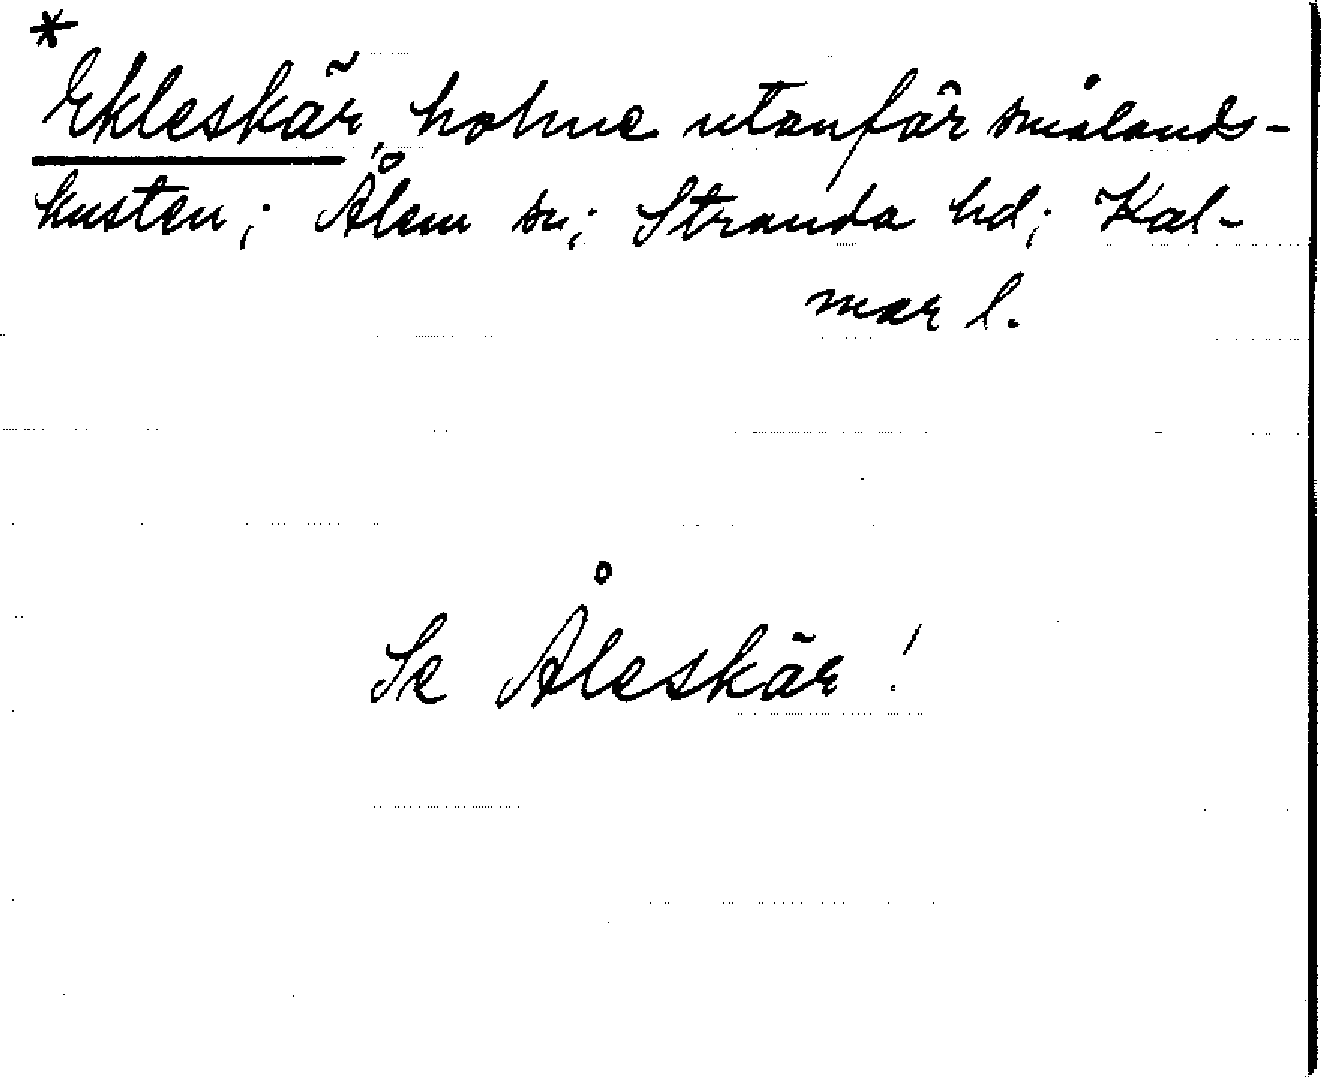 *
Ekleskär, holme utanför smålands-
kusten; Ålem sn; Stranda hd; Kal-
mar l.
Se Åleskär!